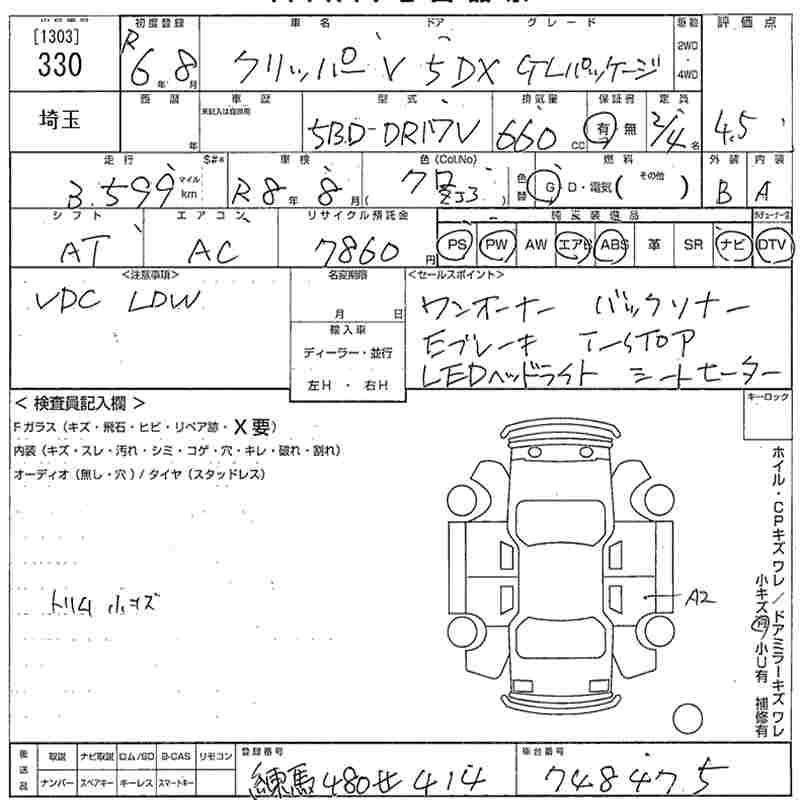 [1303]
330
初度登録
R 6年 8月
車名 ドア グレード
クリッパー V 5DX GLパッケージ
駆動
2WD
4WD
評価点
4.5
埼玉
西暦
年
車歴
未記入は自家用
型式
5BD-DR17V
排気量
660 cc
保証書
有 無
定員
2/4名
走行
3.599
マイル
km
S#*
車検
R8年 8月
色(Col.No)
クロ
ZJ3
色替
燃料
G・D・電気( その他 )
外装
B
内装
A
シフト
AT
エアコン
AC
リサイクル預託金
7860円
純正装備品
PS PW AW エアB ABS 革 SR ナビ
DTV
<注意事項>
VDC LDW
名変期限
月 日
輸入車
ディーラー・並行
左H ・ 右H
<セールスポイント>
ワンオーナー バックソナー
Eブレーキ I-STOP
LEDヘッドライト シートヒーター
キーロック
< 検査員記入欄 >
Fガラス(キズ・飛石・ヒビ・リペア跡・X要)
内装(キズ・スレ・汚れ・シミ・コゲ・穴・キレ・破れ・割れ)
オーディオ(無し・穴)/タイヤ(スタッドレス)
トリム 小キズ
A2
ホイル・CPキズ ワレ / ドアミラーキズ ワレ
小キズ有 小U有 補修有
後送品
取説 ナビ取説 ロム/SD B-CAS リモコン
ナンバー スペアキー キーレス スマートキー
登録番号
練馬 480 せ 414
車台番号
748475